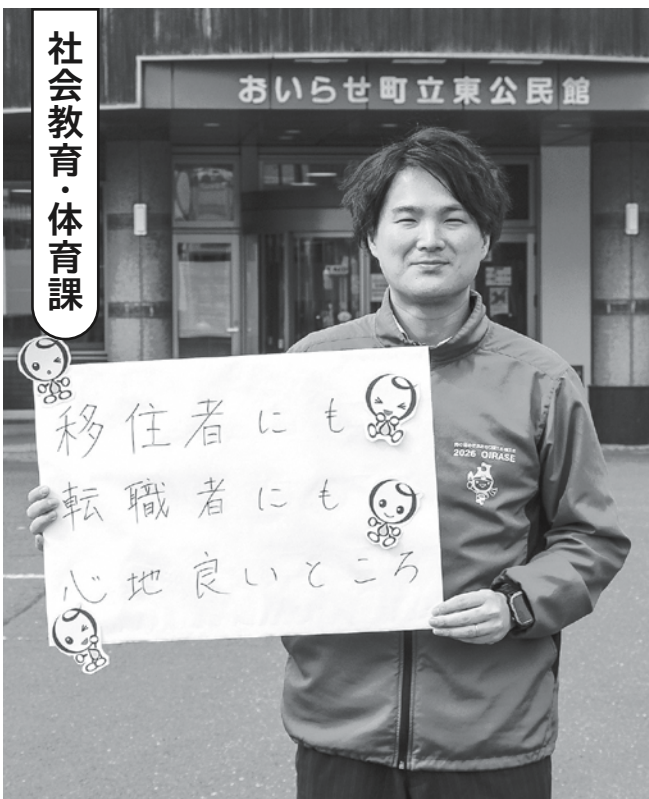 社会教育・体育課
おいらせ町立東公民館
移住者にも
転職者にも
心地良いところ
2026 OIRASE